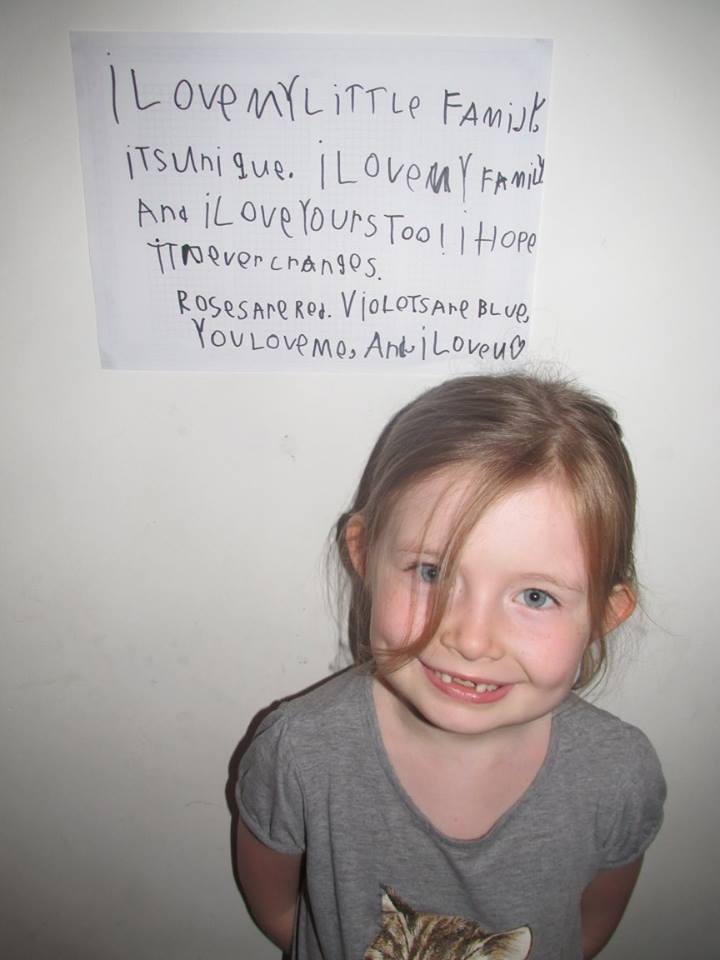 i LOVe MY LiTTLe FAMiLY,
iTS Unique. i LOVe MY FAMiLY
And i LOVe YOurS TOO! i HOPe
iT never changes.
ROSeS Are Red. ViOLeTS Are BLue,
YOU LOVe me, And i LOVe u♡